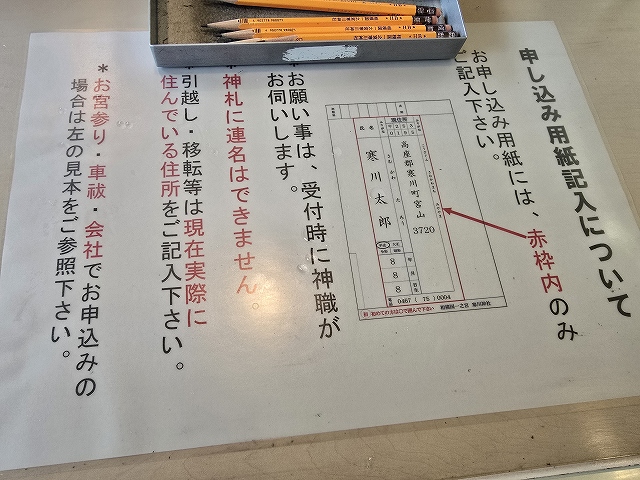 申し込み用紙記入について
お申し込み用紙には、赤枠内のみ
ご記入下さい。
現住所
高座郡寒川町宮山
3720
氏名
寒川太郎
8
8
8
0467(75)0004
相模國一之宮 寒川神社
お願い事は、受付時に神職が
お伺いします。
*神札に連名はできません。
引越し・移転等は現在実際に
住んでいる住所をご記入下さい。
*お宮参り・車祓・会社でお申込みの
場合は左の見本をご参照下さい。